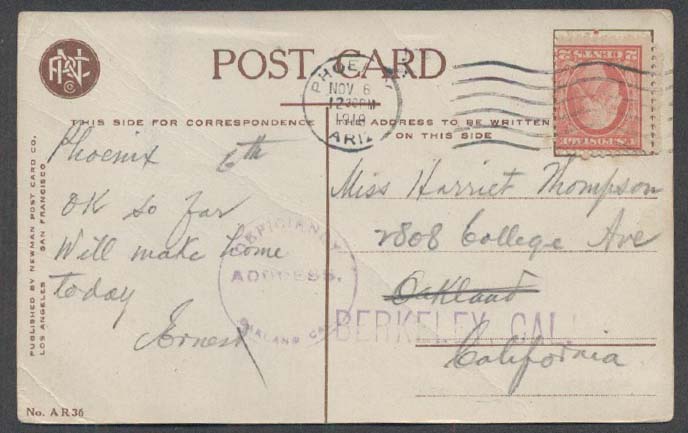 POST CARD
PHOENIX
NOV 6
12 30 PM
1918
ARIZ
THIS SIDE FOR CORRESPONDENCE
THE ADDRESS TO BE WRITTEN
ON THIS SIDE
Phoenix 6th
OK so far
Will make home
today
Ernest
DEFICIENCY
ADDRESS.
OAKLAND CAL.
Miss Harriet Thompson
2808 College Ave
Oakland
BERKELEY CAL.
California
PUBLISHED BY NEWMAN POST CARD CO.
LOS ANGELES SAN FRANCISCO
No. AR36
U.S. POSTAGE
2 CENTS 2